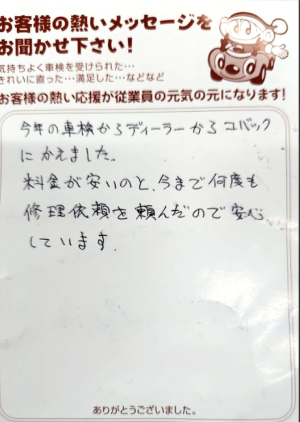 お客様の熱いメッセージを
お聞かせ下さい!
気持ちよく車検を受けられた…
きれいに直った…満足した…などなど
お客様の熱い応援が従業員の元気の元になります!
今年の車検からディーラーからコバック
にかえました。
料金が安いのと、今まで何度も
修理依頼を頼んだので安心
しています.
ありがとうございました。